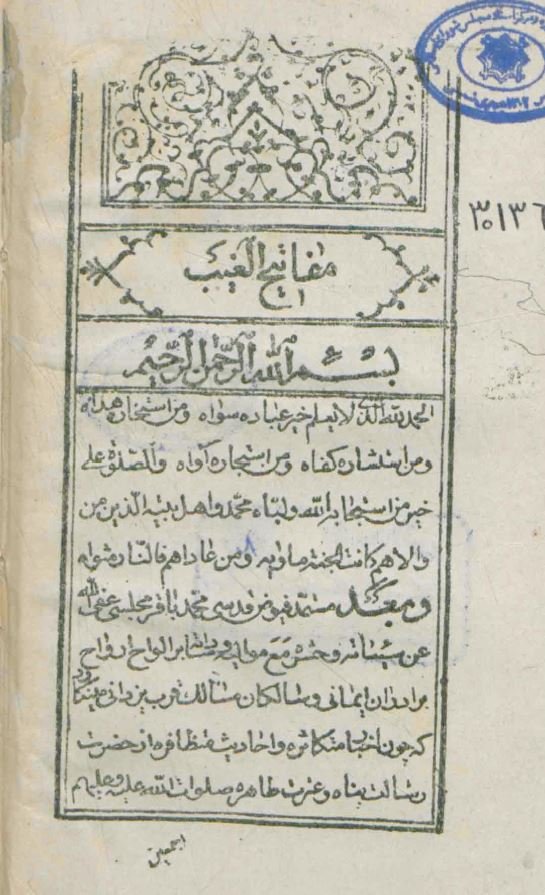 ۳۰۱۳۶
مفاتیح الغیب
بسم الله الرحمن الرحیم
الحمد لله الذی لا یعلم خیر عباده سواه ومن استخاره هداه
ومن استشاره کفاه ومن استجاره آواه والصلوة علی
خیر من استجار بالله ولباه محمد واهل بیته الذین من
والاهم کانت الجنة ماویه ومن عاداهم فالنار مثواه
وبعد مستمد فیوض قدسی محمد باقر مجلسی عفی الله
عن سیئاته وحشره مع موالیه وساداته بر الواح ارواح
برادران ایمانی وسالکان مسالک قرب یزدانی مینگارد
که چون اخبار متکاثره واحادیث متظافره از حضرت
رسالت پناه وعترت طاهره صلوات الله علیه وعلیهم
اجمعین